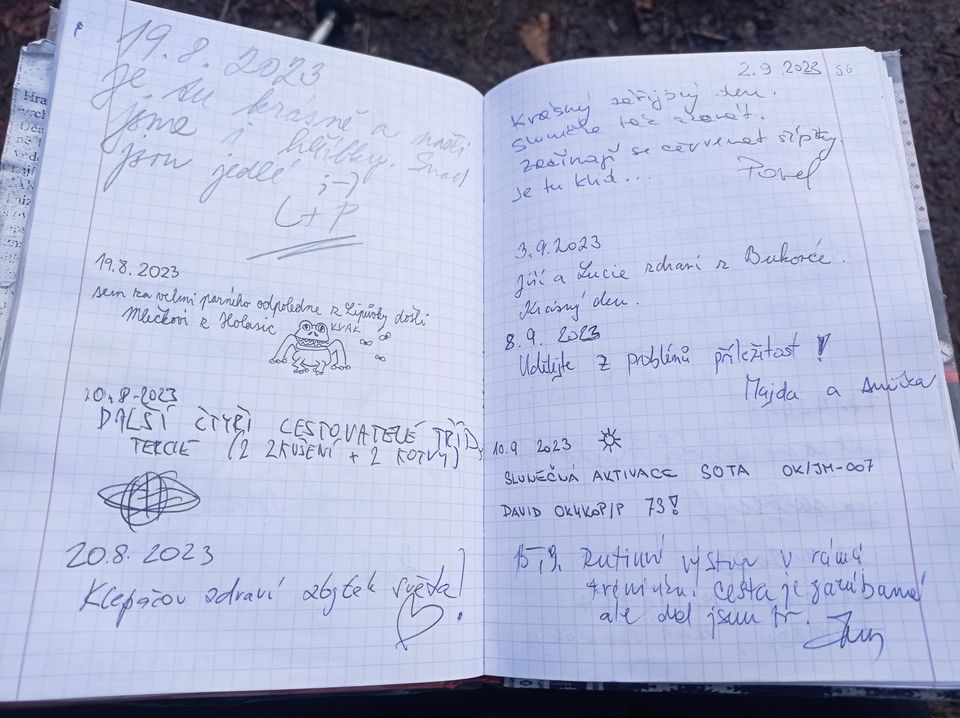 19.8.2023
je tu krásně a našli
jsme i hříbky. Snad
jsou jedlé ;-)
L+P
19.8.2023
sem za velmi parného odpoledne z Lipůvky došli
Mlečkovi z Holasic
KVAK
20.8.2023
DALŠÍ ČTYŘI CESTOVATELÉ TŘÍDY
TERCIE (2 ZKUŠENÍ + 2 KOTVY)
20.8.2023
Klepáčov zdraví zbytek světa!
2.9.2023
56
Krásný zářijový den.
Sluníčko
začínají se červenat šípky.
Je tu klid...
Pavel
3.9.2023
Jiří a Lucie zdraví z Bukovče.
Krásný den.
8.9.2023
Udělejte z problémů příležitost!
Majda a Anička
10.9 2023
SLUNEČNÁ AKTIVACE SOTA OK/JM-007
DAVID OK4KOP/P 73!
15.9. Rutinní výstup v rámci
tréninku. cesta je zarúbaná
ale dal jsem to.